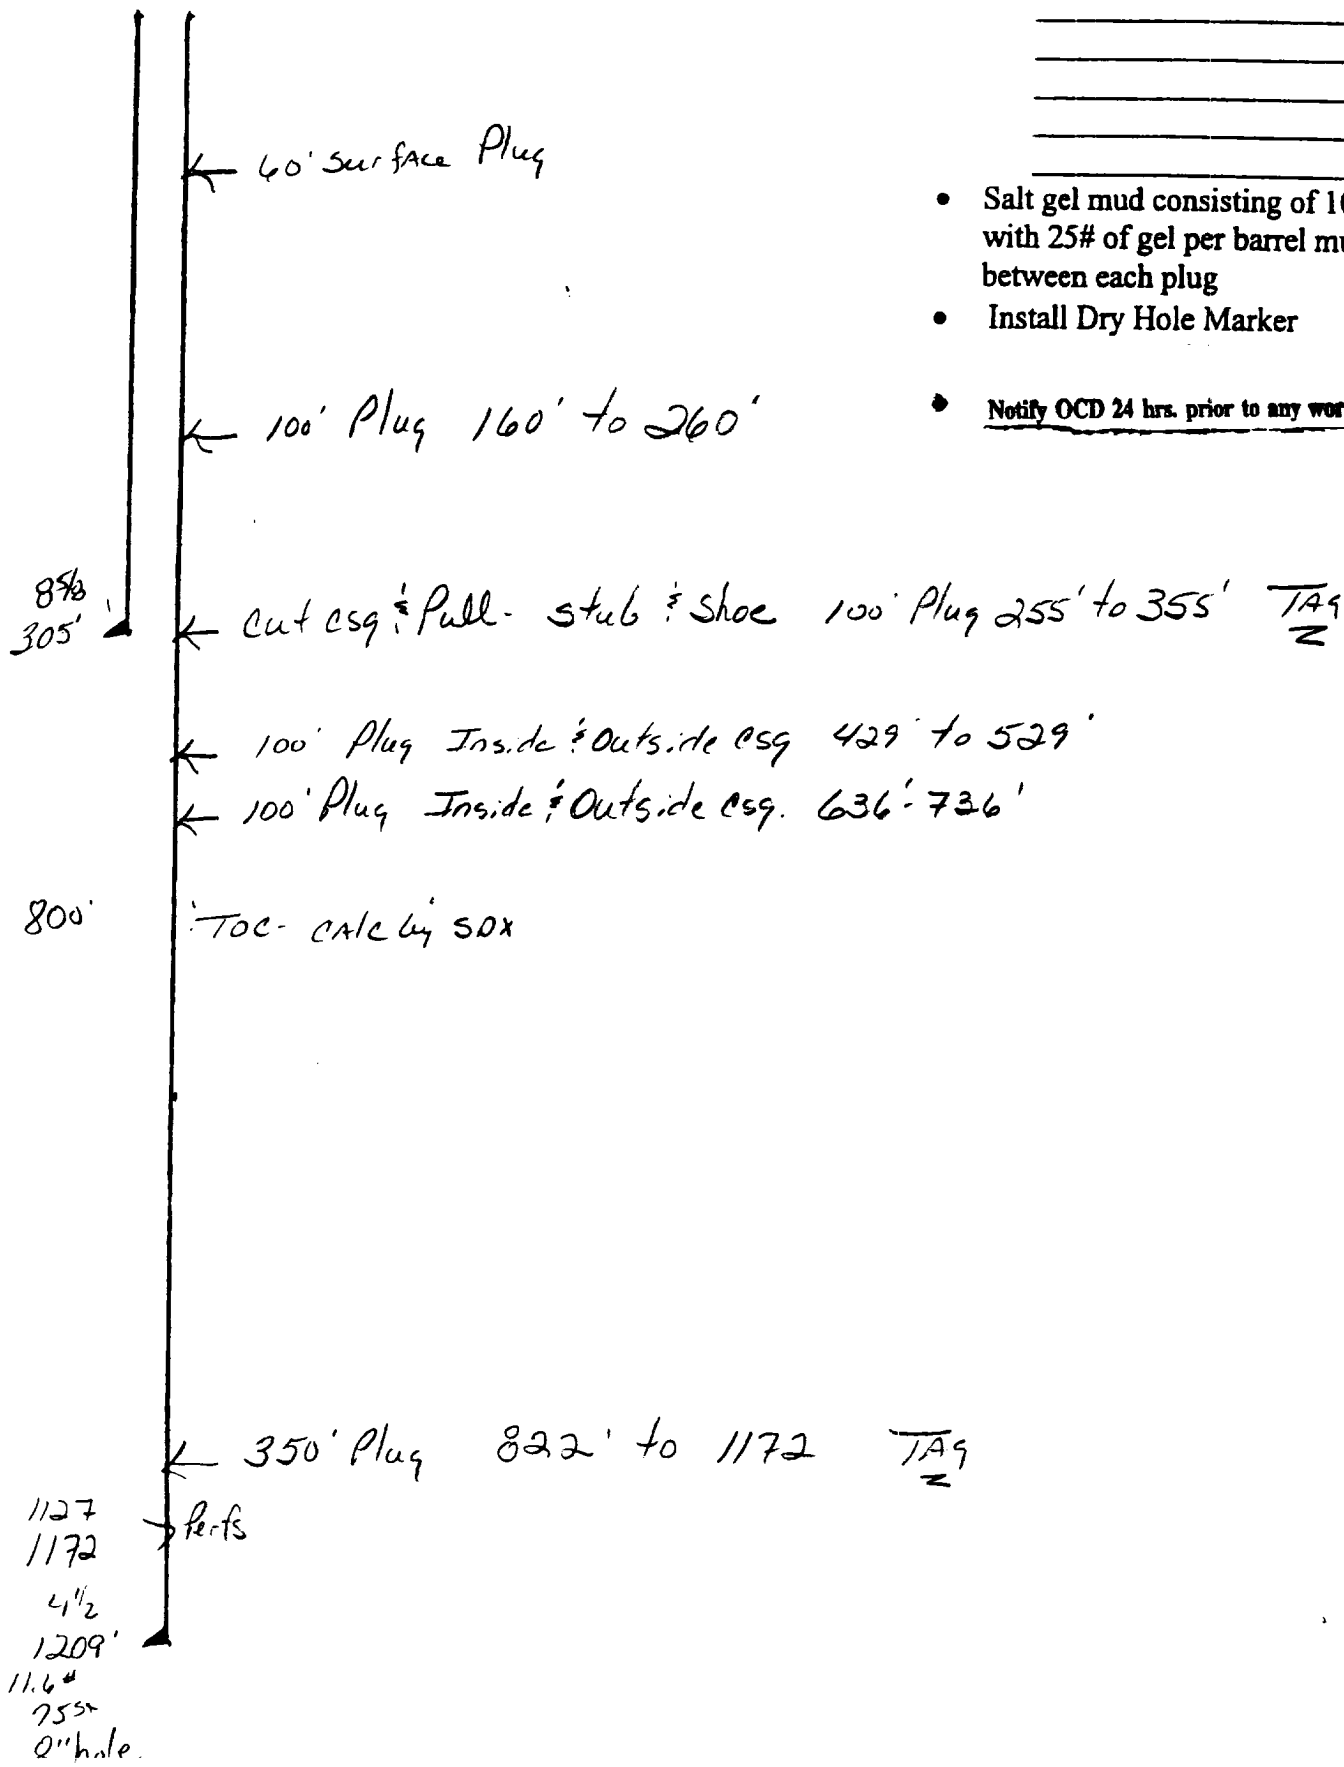 60' Surface Plug
• Salt gel mud consisting of 10
with 25# of gel per barrel mu
between each plug
• Install Dry Hole Marker
100' Plug 160' to 260'
• Notify OCD 24 hrs. prior to any wor
8 5/8
305'
Cut csg & Pull - stub & Shoe 100' Plug 255' to 355' TAg
100' Plug Inside & Outside csg 429' to 529'
100' Plug Inside & Outside csg. 636' - 736'
800' TOC - CAlc by SDX
350' Plug 822' to 1172 TAg
1127
1172
Perfs
4 1/2
1209'
11.6#
75 sx
8" hole